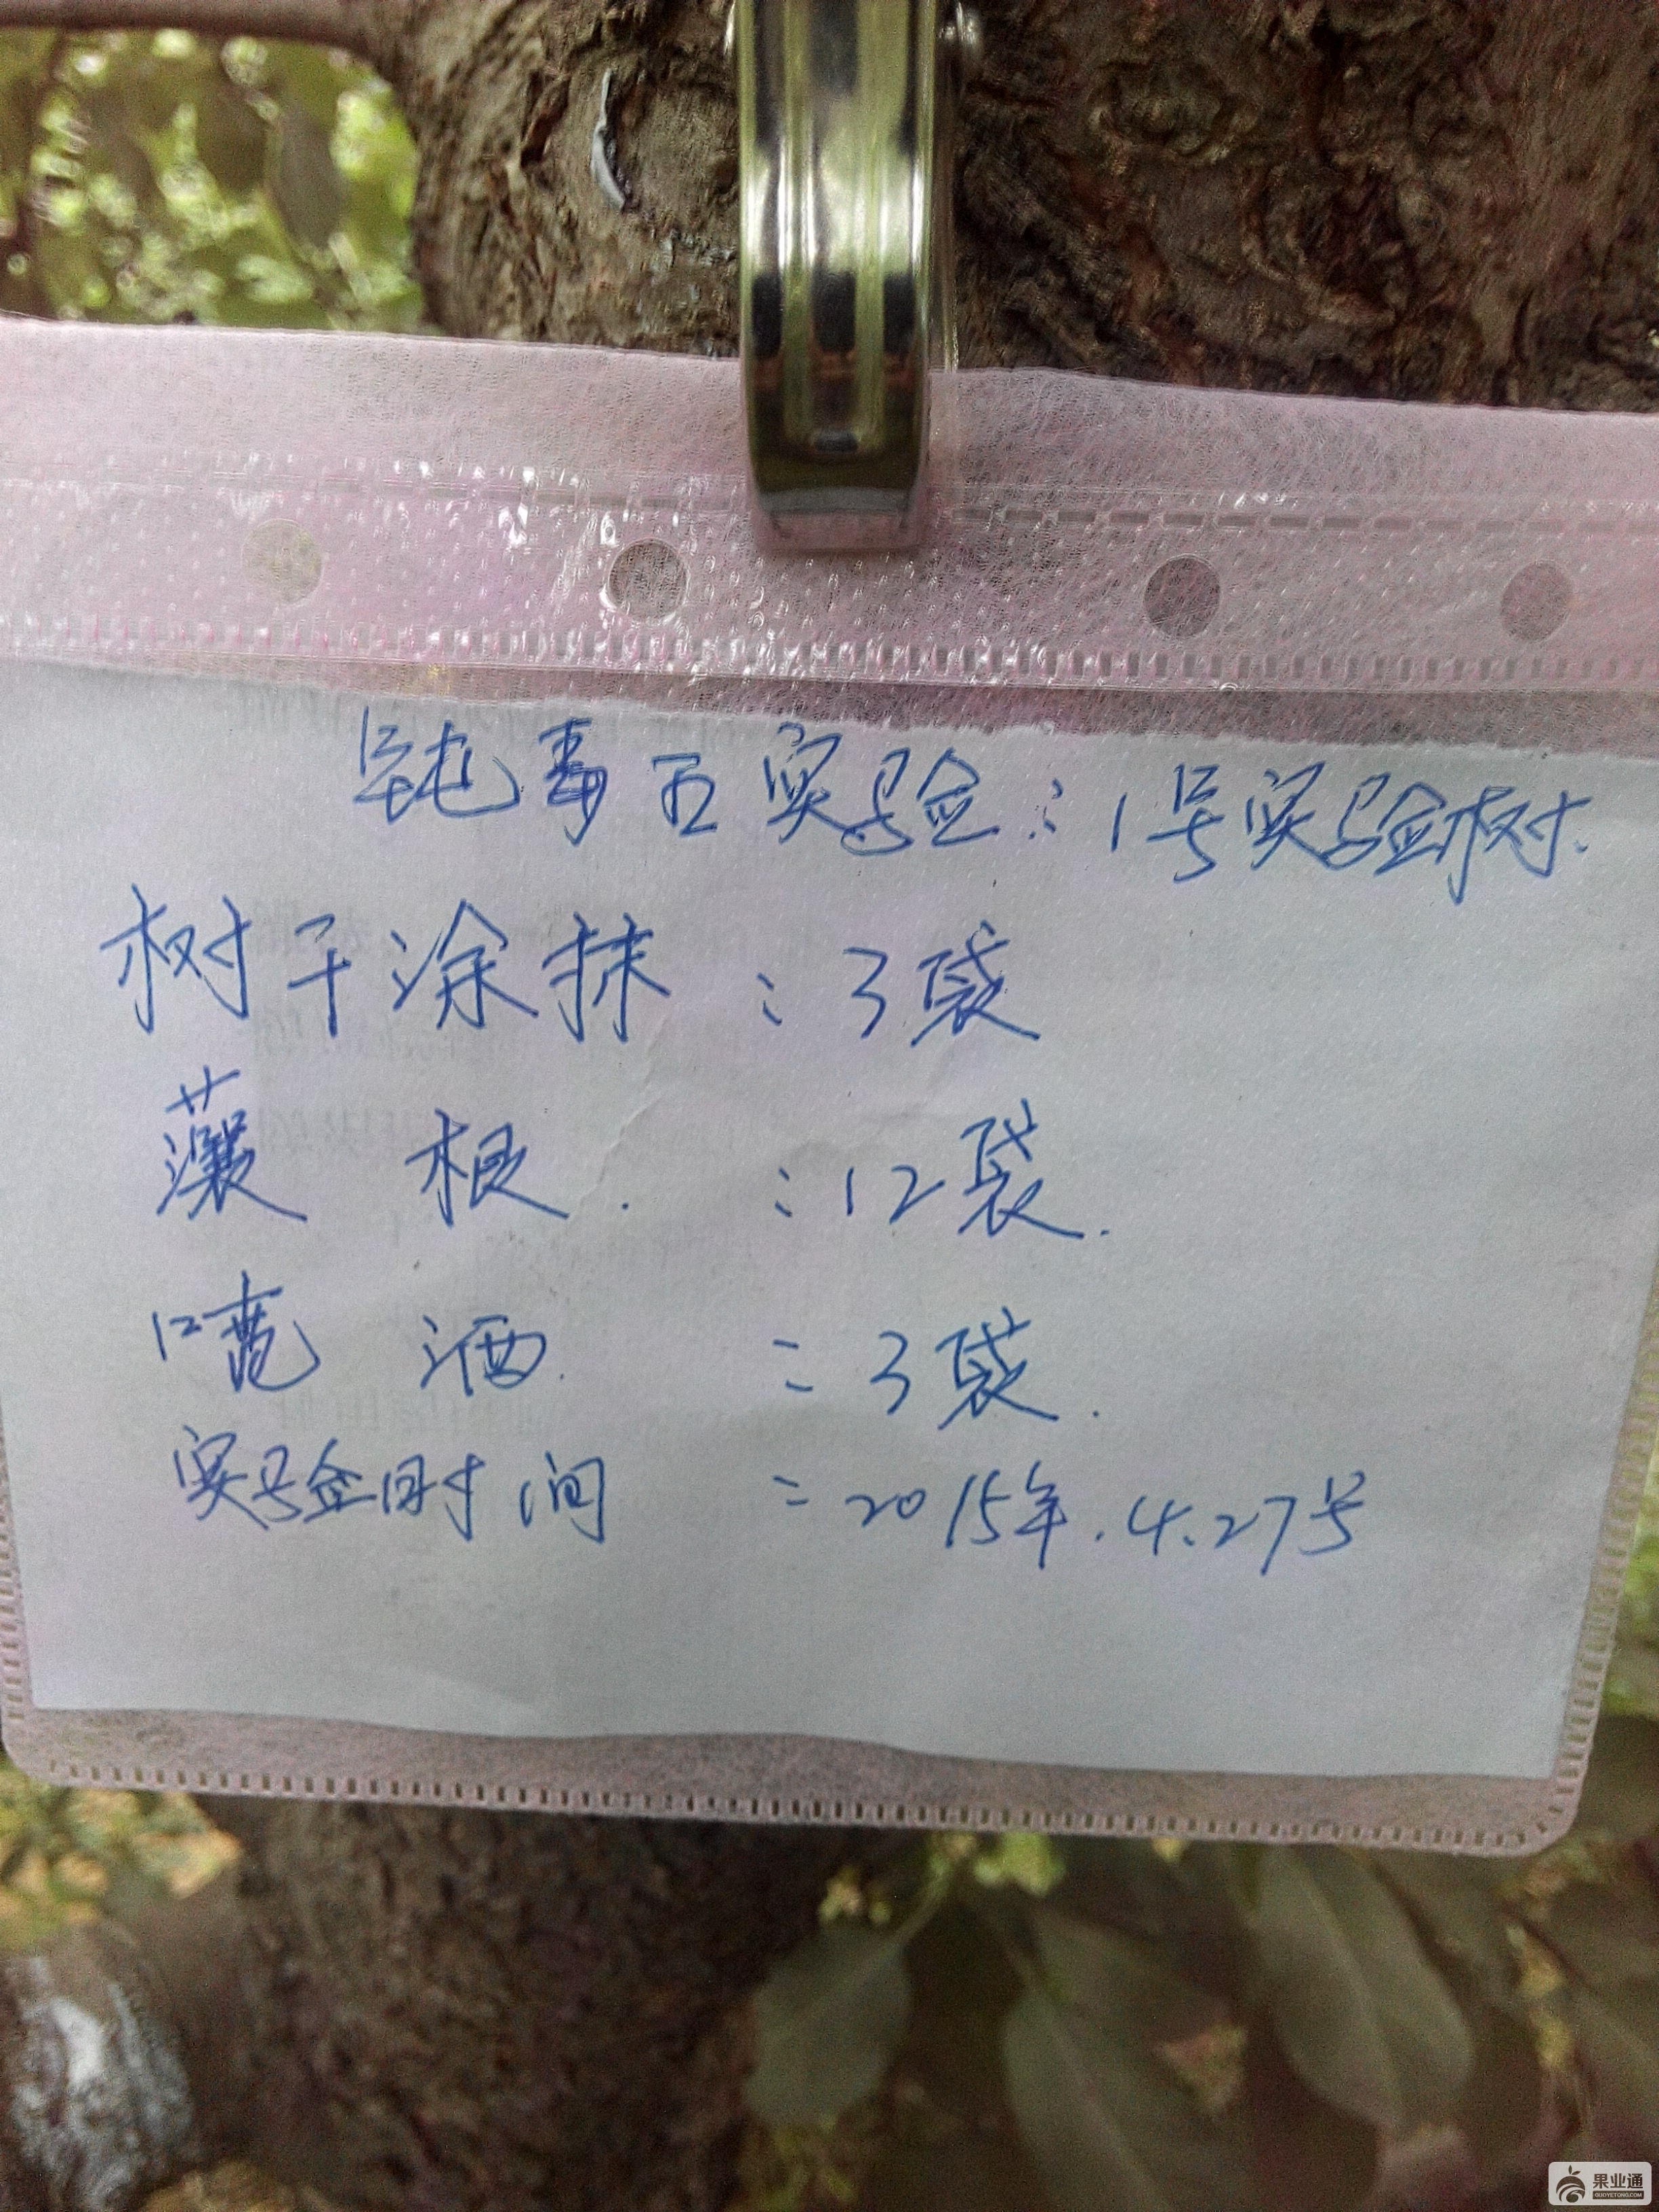 钝毒五实验:1号实验树.
树干涂抹:3袋
灌根.:12袋.
喷洒.:3袋.
实验时间:2015年.4.27号
果业通
GUOYETONG.COM